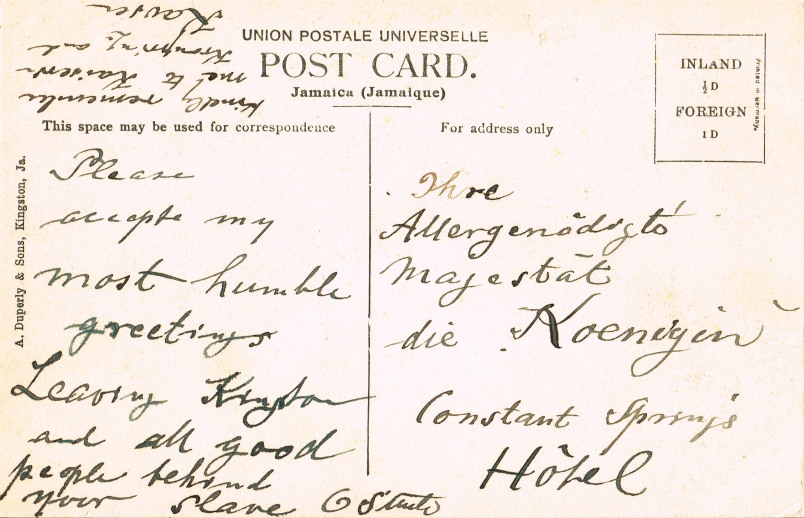 UNION POSTALE UNIVERSELLE
POST CARD.
Jamaica (Jamaique)
This space may be used for correspondence
For address only
INLAND
½D
FOREIGN
1D
Printed in Germany.
A. Duperly & Sons, Kingston, Ja.
Please
accepte my
most humble
greetings
Leaving Kingston
and all good
people behind
your slave O
Kindly remember
me to Kaiserin
Kronprinz and
Kaiser
Ihre
Allergenädigste
Majestät
die Koenigin
Constant Springs
Hôtel